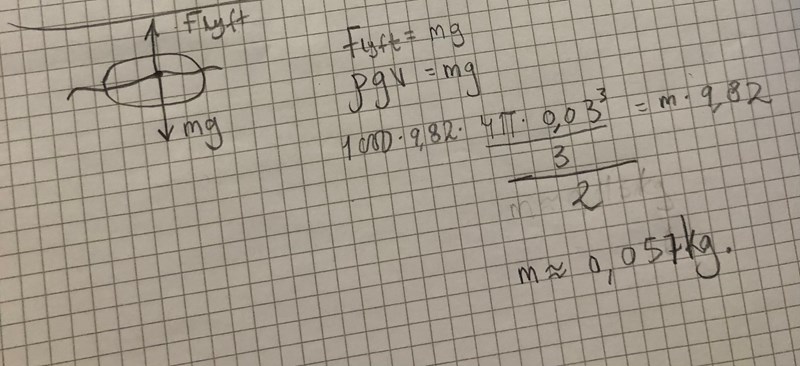 Flyft
mg
Flyft = mg
ρgv = mg
1000 · 9,82 · 4π · 0,03³ / 3 / 2 = m · 9,82
m ≈ 0,057 kg.